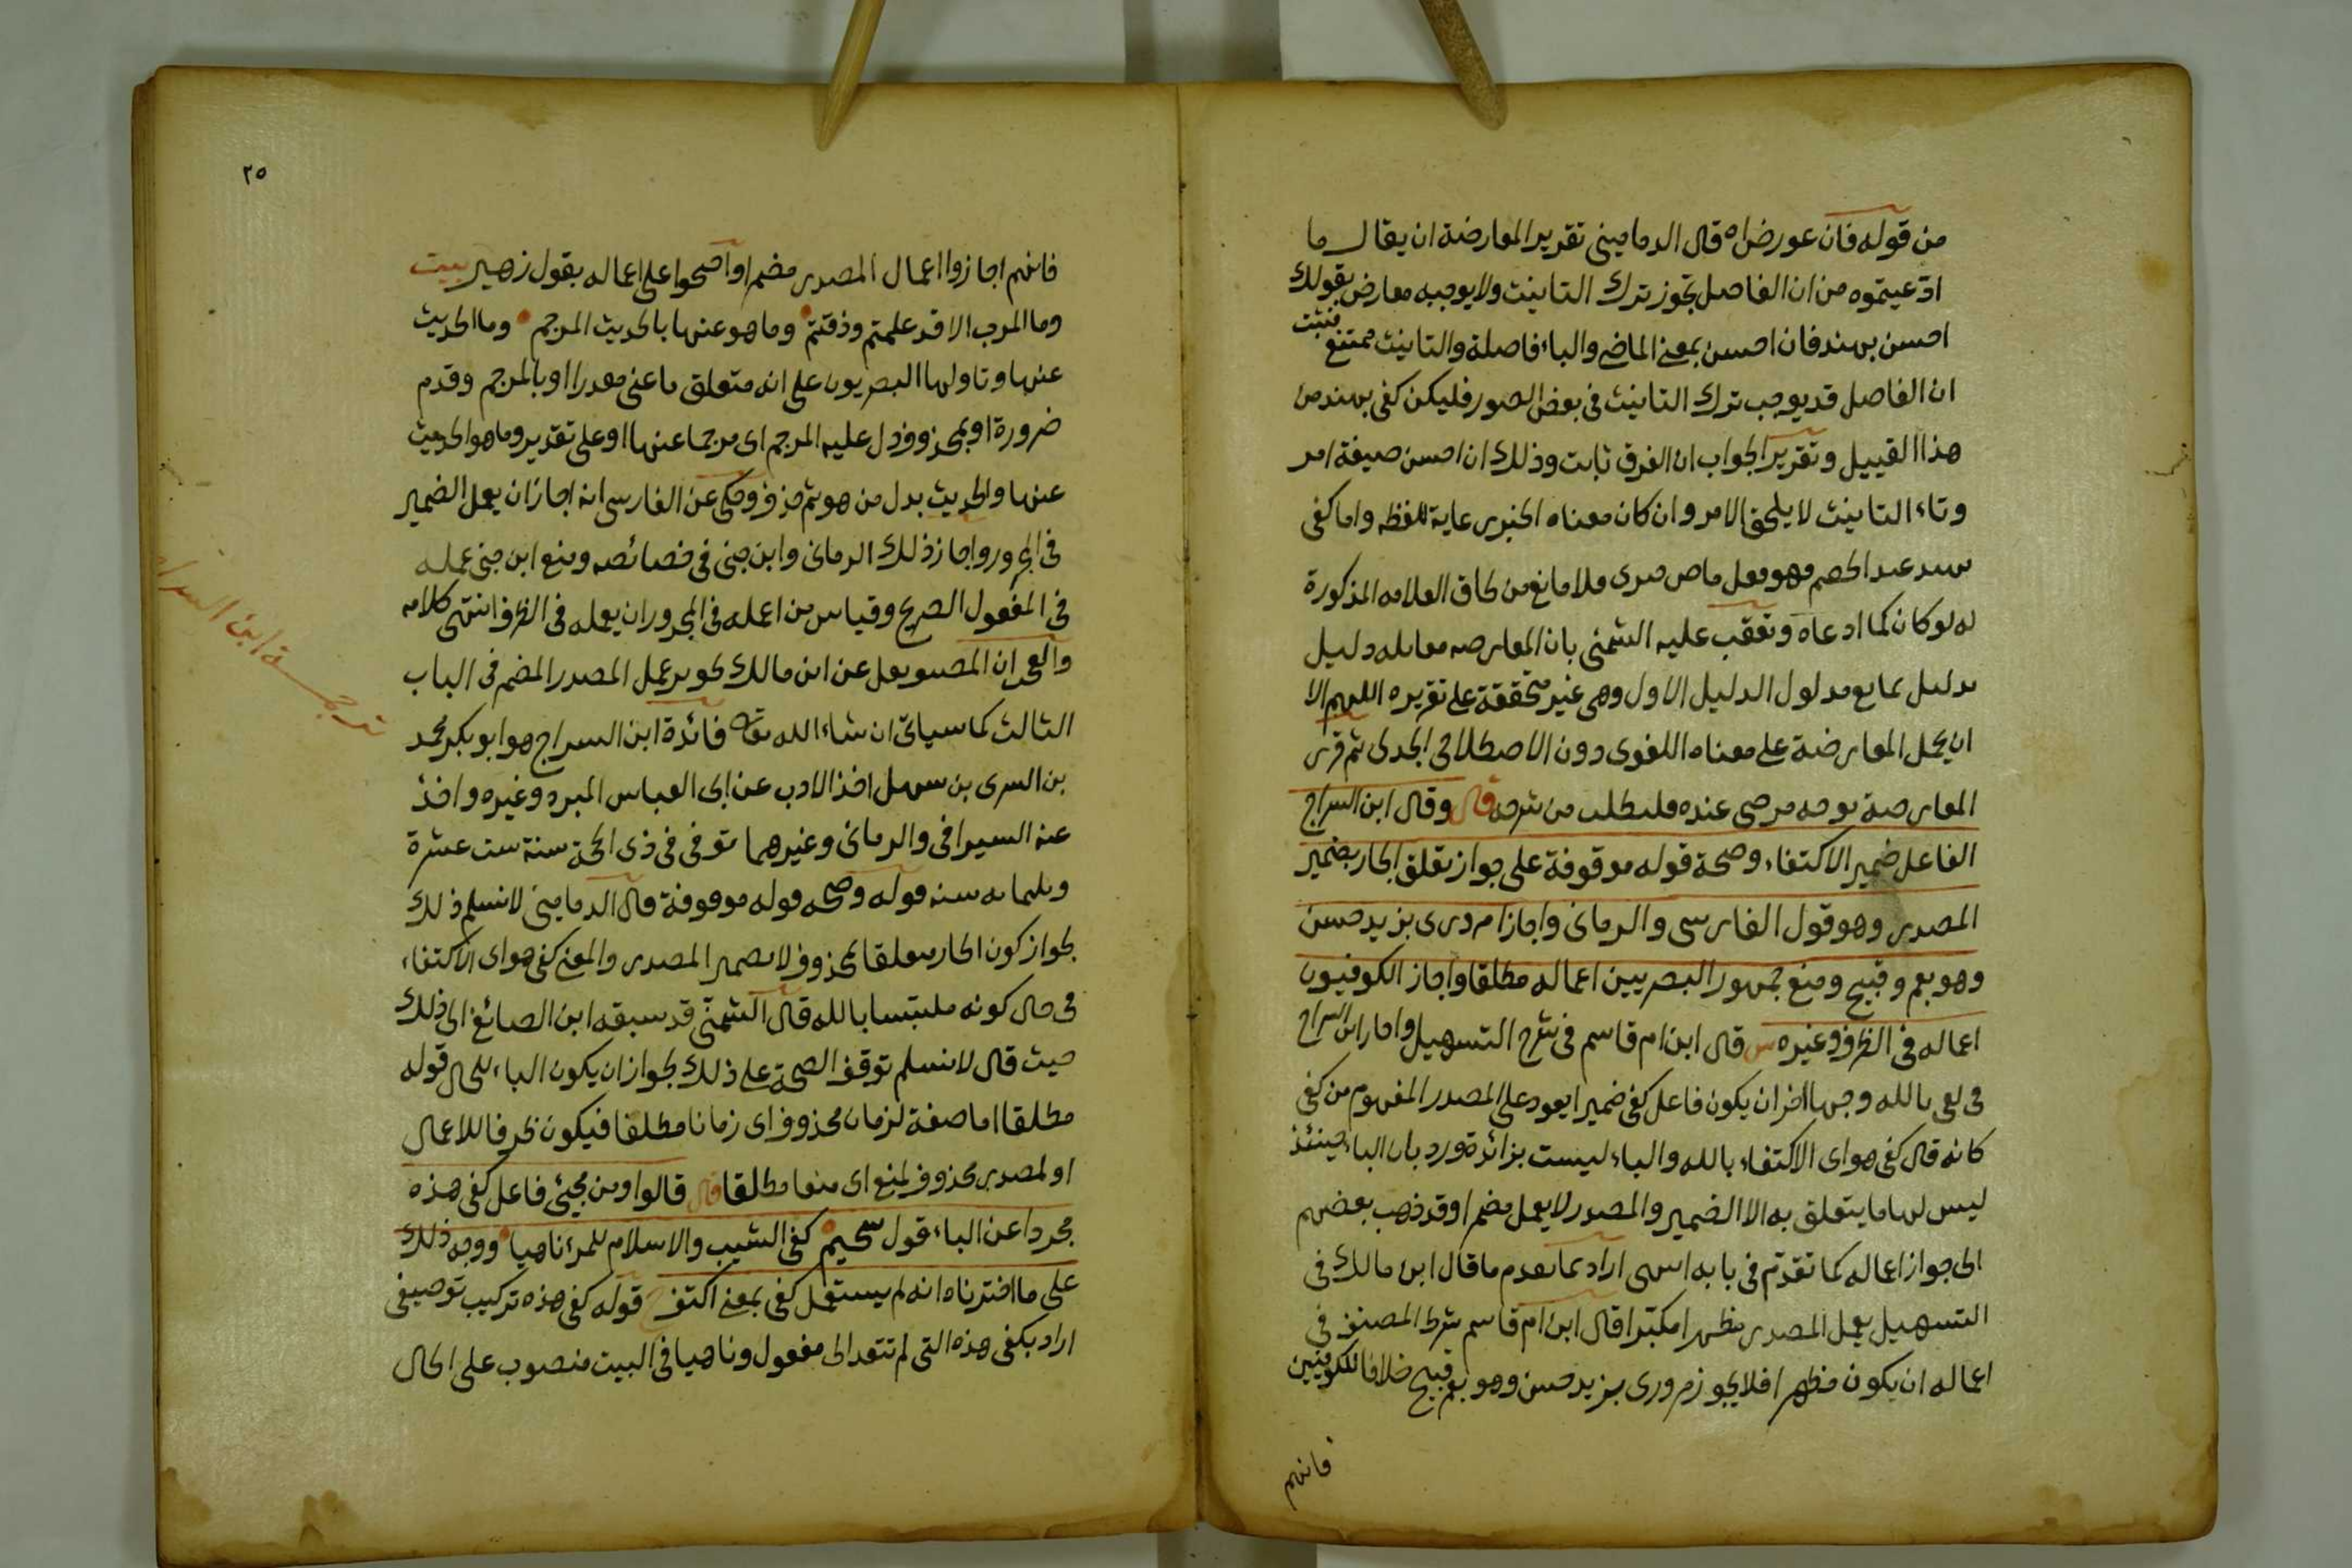 من قوله فان عورض اه قال الدماميني تقرير المعارضة ان يقال ما
ادعيتموه من ان الفاصل يجوز ترك التانيث ولا يوجبه معارض بقولك
احسن بهند فان احسن بمعنى الماضي والباء فاصلة والتانيث ممتنع فثبت
ان الفاصل قد يوجب ترك التانيث في بعض الصور فليكن كفى بهند من
هذا القبيل وتقرير الجواب ان الفرق ثابت وذلك ان احسن صيغة امر
وتاء التانيث لا يلحق الامر وان كان معناه الخبر رعاية للفظه واما كفى
عند الخصم فهو فعل ماض صرى فلا مانع من لحاق العلامه المذكورة
له لو كان كما ادعاه وتعقب عليه الشمني بان المعارضه مقابله دليل
بدليل يمانع مدلول الدليل الاول وهي غير متحققة على تقريره اللهم الا
ان يحمل المعارضة على معناه اللغوى دون الاصطلاحى الجدلى ثم قرر
المعارضة بوجه مرضى عنده فليطلب من شرحه قال وقال ابن السراج
الفاعل ضمير الاكتفاء وصحة قوله موقوفة على جواز تعلق الجار بضمير
المصدر وهو قول الفارسى والرمانى واجازا مرورى بزيد حسن
وهو بعمرو قبيح ومنع جمهور البصريين اعماله مطلقا واجاز الكوفيون
اعماله في الظرف وغيره س قال ابن ام قاسم في شرح التسهيل واجاز ابن السراج
فى كفى بالله وجها اخر ان يكون فاعل كفى ضميرا يعود على المصدر المفهوم من كفى
كانه قال كفى هو اى الاكتفاء بالله والباء ليست بزائدة ورد بان الباء حينئذ
ليس لها ما يتعلق به الا الضمير والمصدر لا يعمل مضمرا وقد ذهب بعضهم
الى جواز اعماله كما تقدم في بابه انتهى اراد بما تقدم ما قال ابن مالك فى
التسهيل يعمل المصدر مظهرا مكبرا قال ابن ام قاسم شرط المصنف في
اعماله ان يكون مظهرا فلا يجوز مرورى بزيد حسن وهو بعمرو قبيح خلافا للكوفيين
فانهم
٢٥
فانهم اجازوا اعمال المصدر مضمرا واحتجوا على اعماله بقول زهير بيت
وما الحرب الا قد علمتم وذقتم وما هو عنها بالحديث المرجم وما الحديث
عنها وتاولها البصريون على انه متعلق باعنى مقدرا او بالمرجم وقدم
ضرورة او بمحذوف دل عليه المرجم اى مرجما عنها او على تقدير وما هو الحديث
عنها والحديث بدل من هو ثم حذف وحكى عن الفارسى انه اجاز ان يعمل الضمير
في المجرور واجاز ذلك الرمانى وابن جنى في خصائصه ومنع ابن جنى عمله
في المفعول الصريح وقياس من اعمله فى المجرور ان يعمله فى الظرف انتهى كلامه
والعجب ان المصنف نقل عن ابن مالك تجويز عمل المصدر المضمر فى الباب
الثالث كما سياتى ان شاء الله تعالى فائدة ابن السراج هو ابو بكر محمد
بن السرى بن سهل اخذ الادب عن ابى العباس المبرد وغيره واخذ
عنه السيرافى والرمانى وغيرهما توفى فى ذى الحجة سنة ست عشرة
وثلثمائه سنه قوله وصحه قوله موقوفة قال الدمامينى لا نسلم ذلك
لجواز كون الجار متعلقا بمحذوف لا بضمير المصدر والمعنى كفى هو اى الاكتفاء
فى حال كونه ملتبسا بالله قال الشمنى قد سبقه ابن الصائغ الى ذلك
حيث قال لا نسلم توقف الصحة على ذلك لجواز ان يكون الباء للحال قوله
مطلقا اما صفة لزمان محذوف اى زمانا مطلقا فيكون ظرفا للاعمال
او لمصدر محذوف لمنع اى منعا مطلقا قال قالوا ومن مجيئ فاعل كفى هذه
مجردا عن الباء قول سحيم كفى الشيب والاسلام للمرء ناهيا ووجه ذلك
على ما اخترناه انه لم يستعمل كفى بمعنى اكتف قوله كفى هذه تركيب توصيفى
اراد بكفى هذه التى لم تتعد الى مفعول وناهيا فى البيت منصوب على الحال
ترجمة ابن السراج